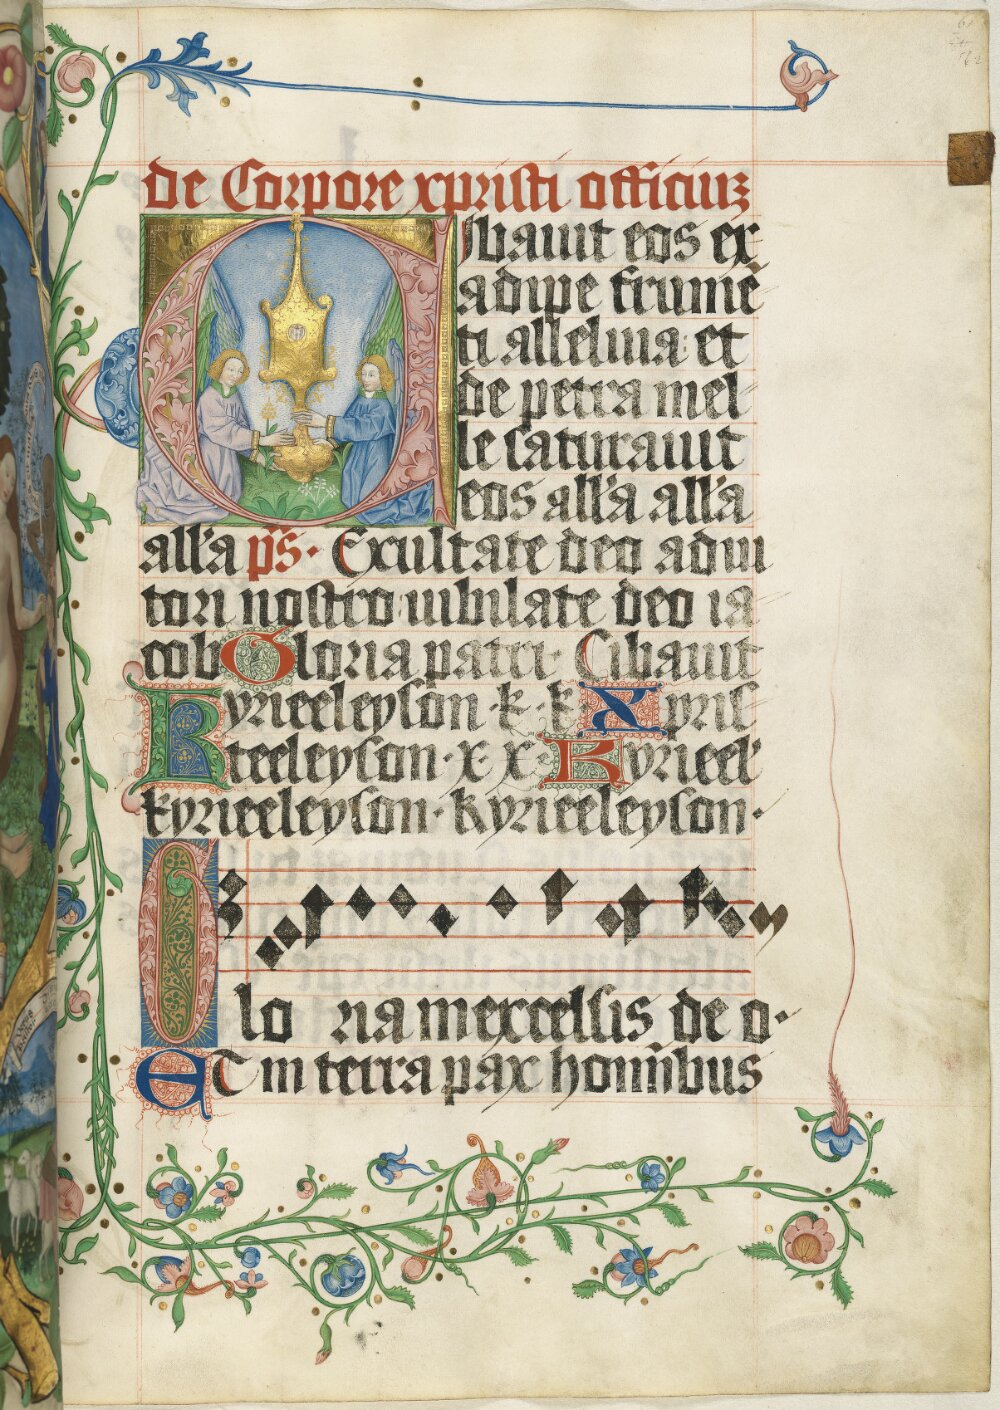 de Corpore xpristi officiuz
Cibauit eos ex
adipe frumē
ti alleluia et
de petra mel
le saturauit
eos all'a all'a
all'a ps. Exultate deo adiu
tori nostro iubilate deo ia
cob Gloria patri. Cibauit
Kyrieeleyson. k. k Xpris
teeleyson. x. x. Kyrieel'
kyrieeleyson. Kyrieeleyson.
Glo ria in excelsis de o.
ET in terra pax hominibus